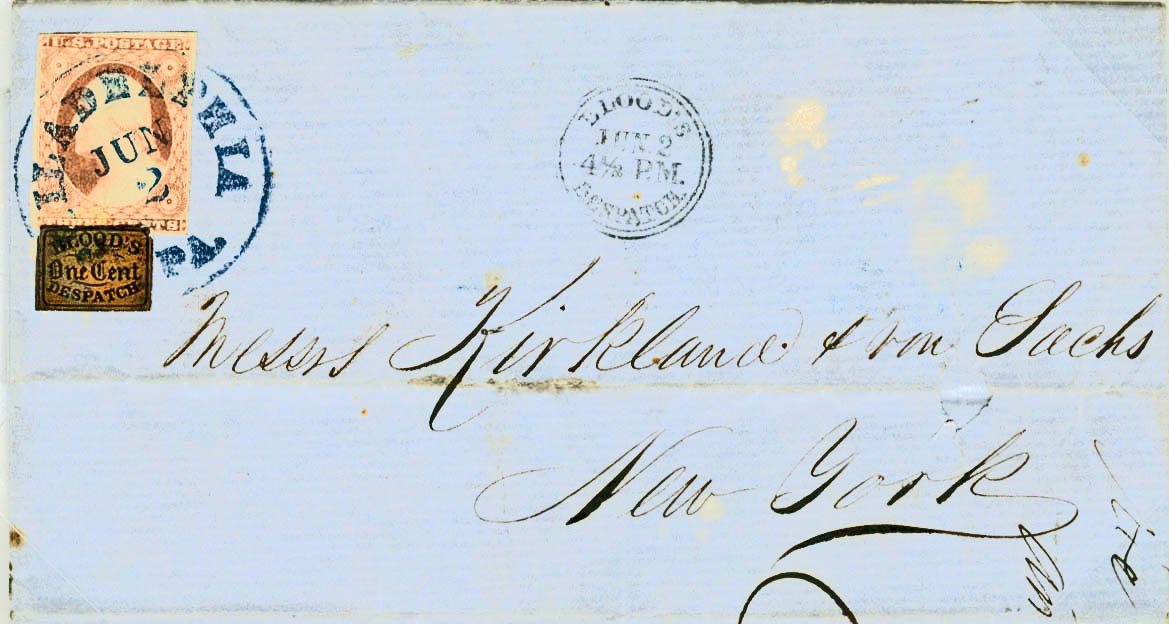 U.S. POSTAGE
ILADELPHIA
JUN
2
Pa
CENTS
BLOOD'S
One Cent
DESPATCH.
BLOOD'S
JUN. 2
4½ P.M.
DESPATCH.
Messrs Kirkland & von Sachs
New York